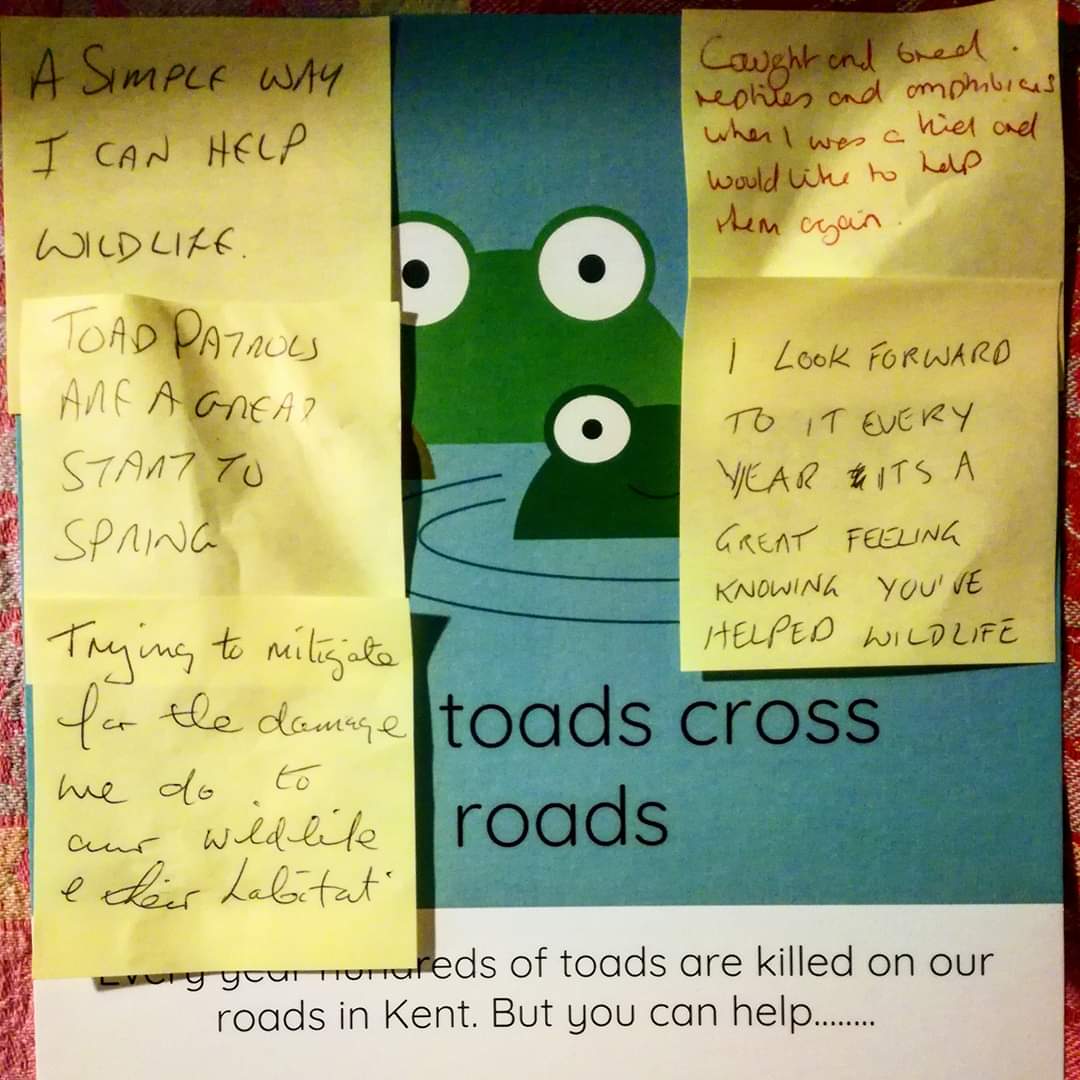 A SIMPLE WAY
I CAN HELP
WILDLIFE.
TOAD PATROLS
ARE A GREAT
START TO
SPRING
Trying to mitigate
for the damage
we do to
our wildlife
& their habitat
Caught and bred
reptiles and amphibians
when I was a kid and
would like to help
them again.
I LOOK FORWARD
TO IT EVERY
YEAR ITS A
GREAT FEELING
KNOWING YOU'VE
HELPED WILDLIFE
toads cross
roads
Every year hundreds of toads are killed on our
roads in Kent. But you can help........